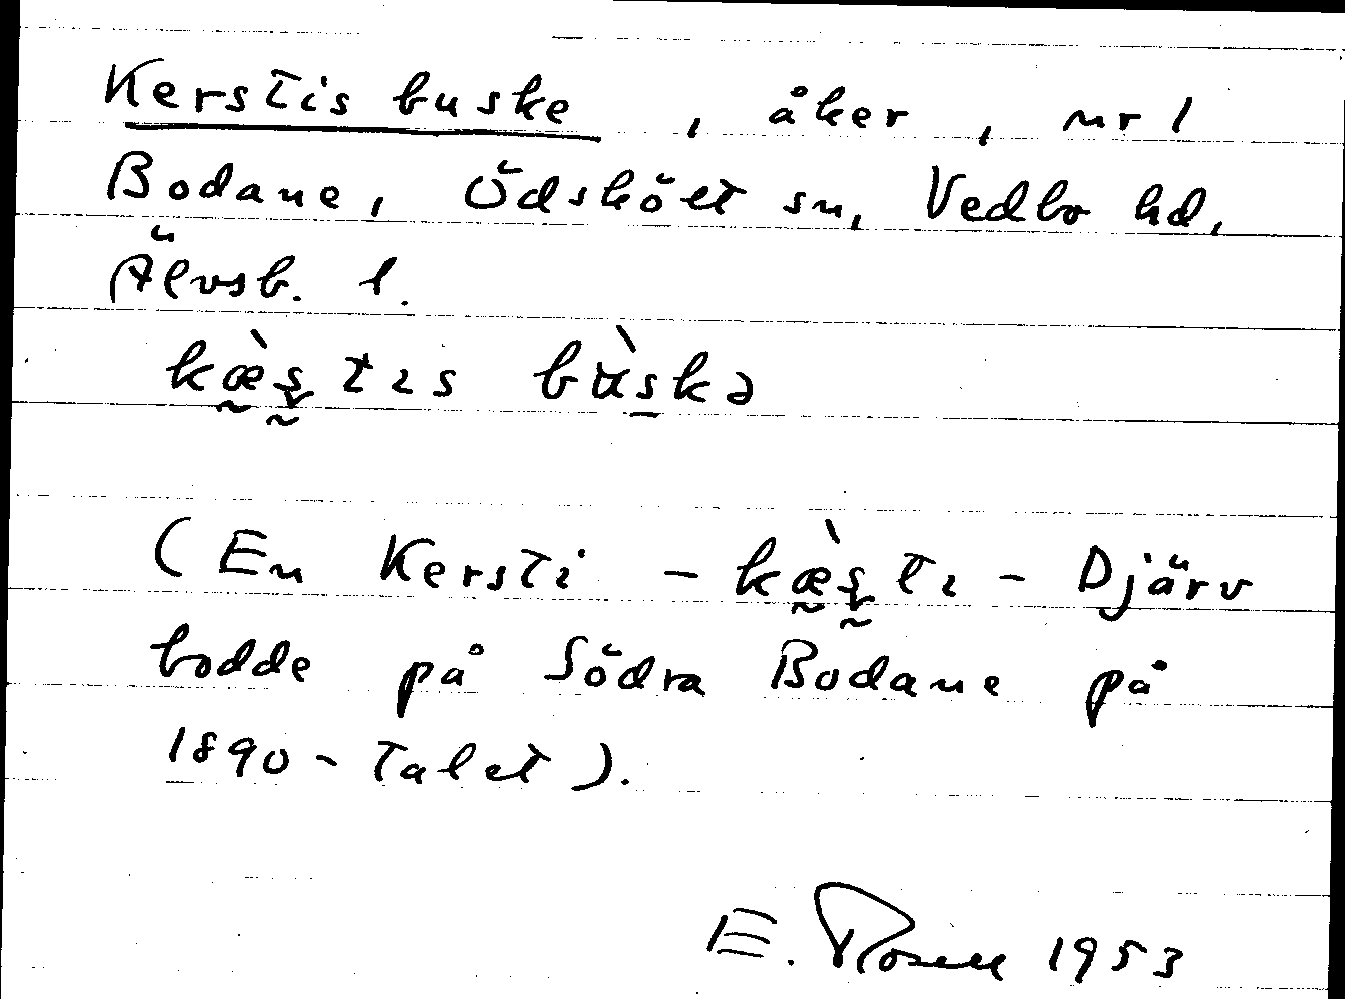 Kerstis buske, åker, nr 1
Bodane, Ödskölt sn, Vedbo hd,
Älvsb. l.
kæ̀ş tɪs bùskə
(En Kersti - kæ̀ştɪ - Djärv
bodde på Södra Bodane på
1890-talet).
E. Rosell 1953